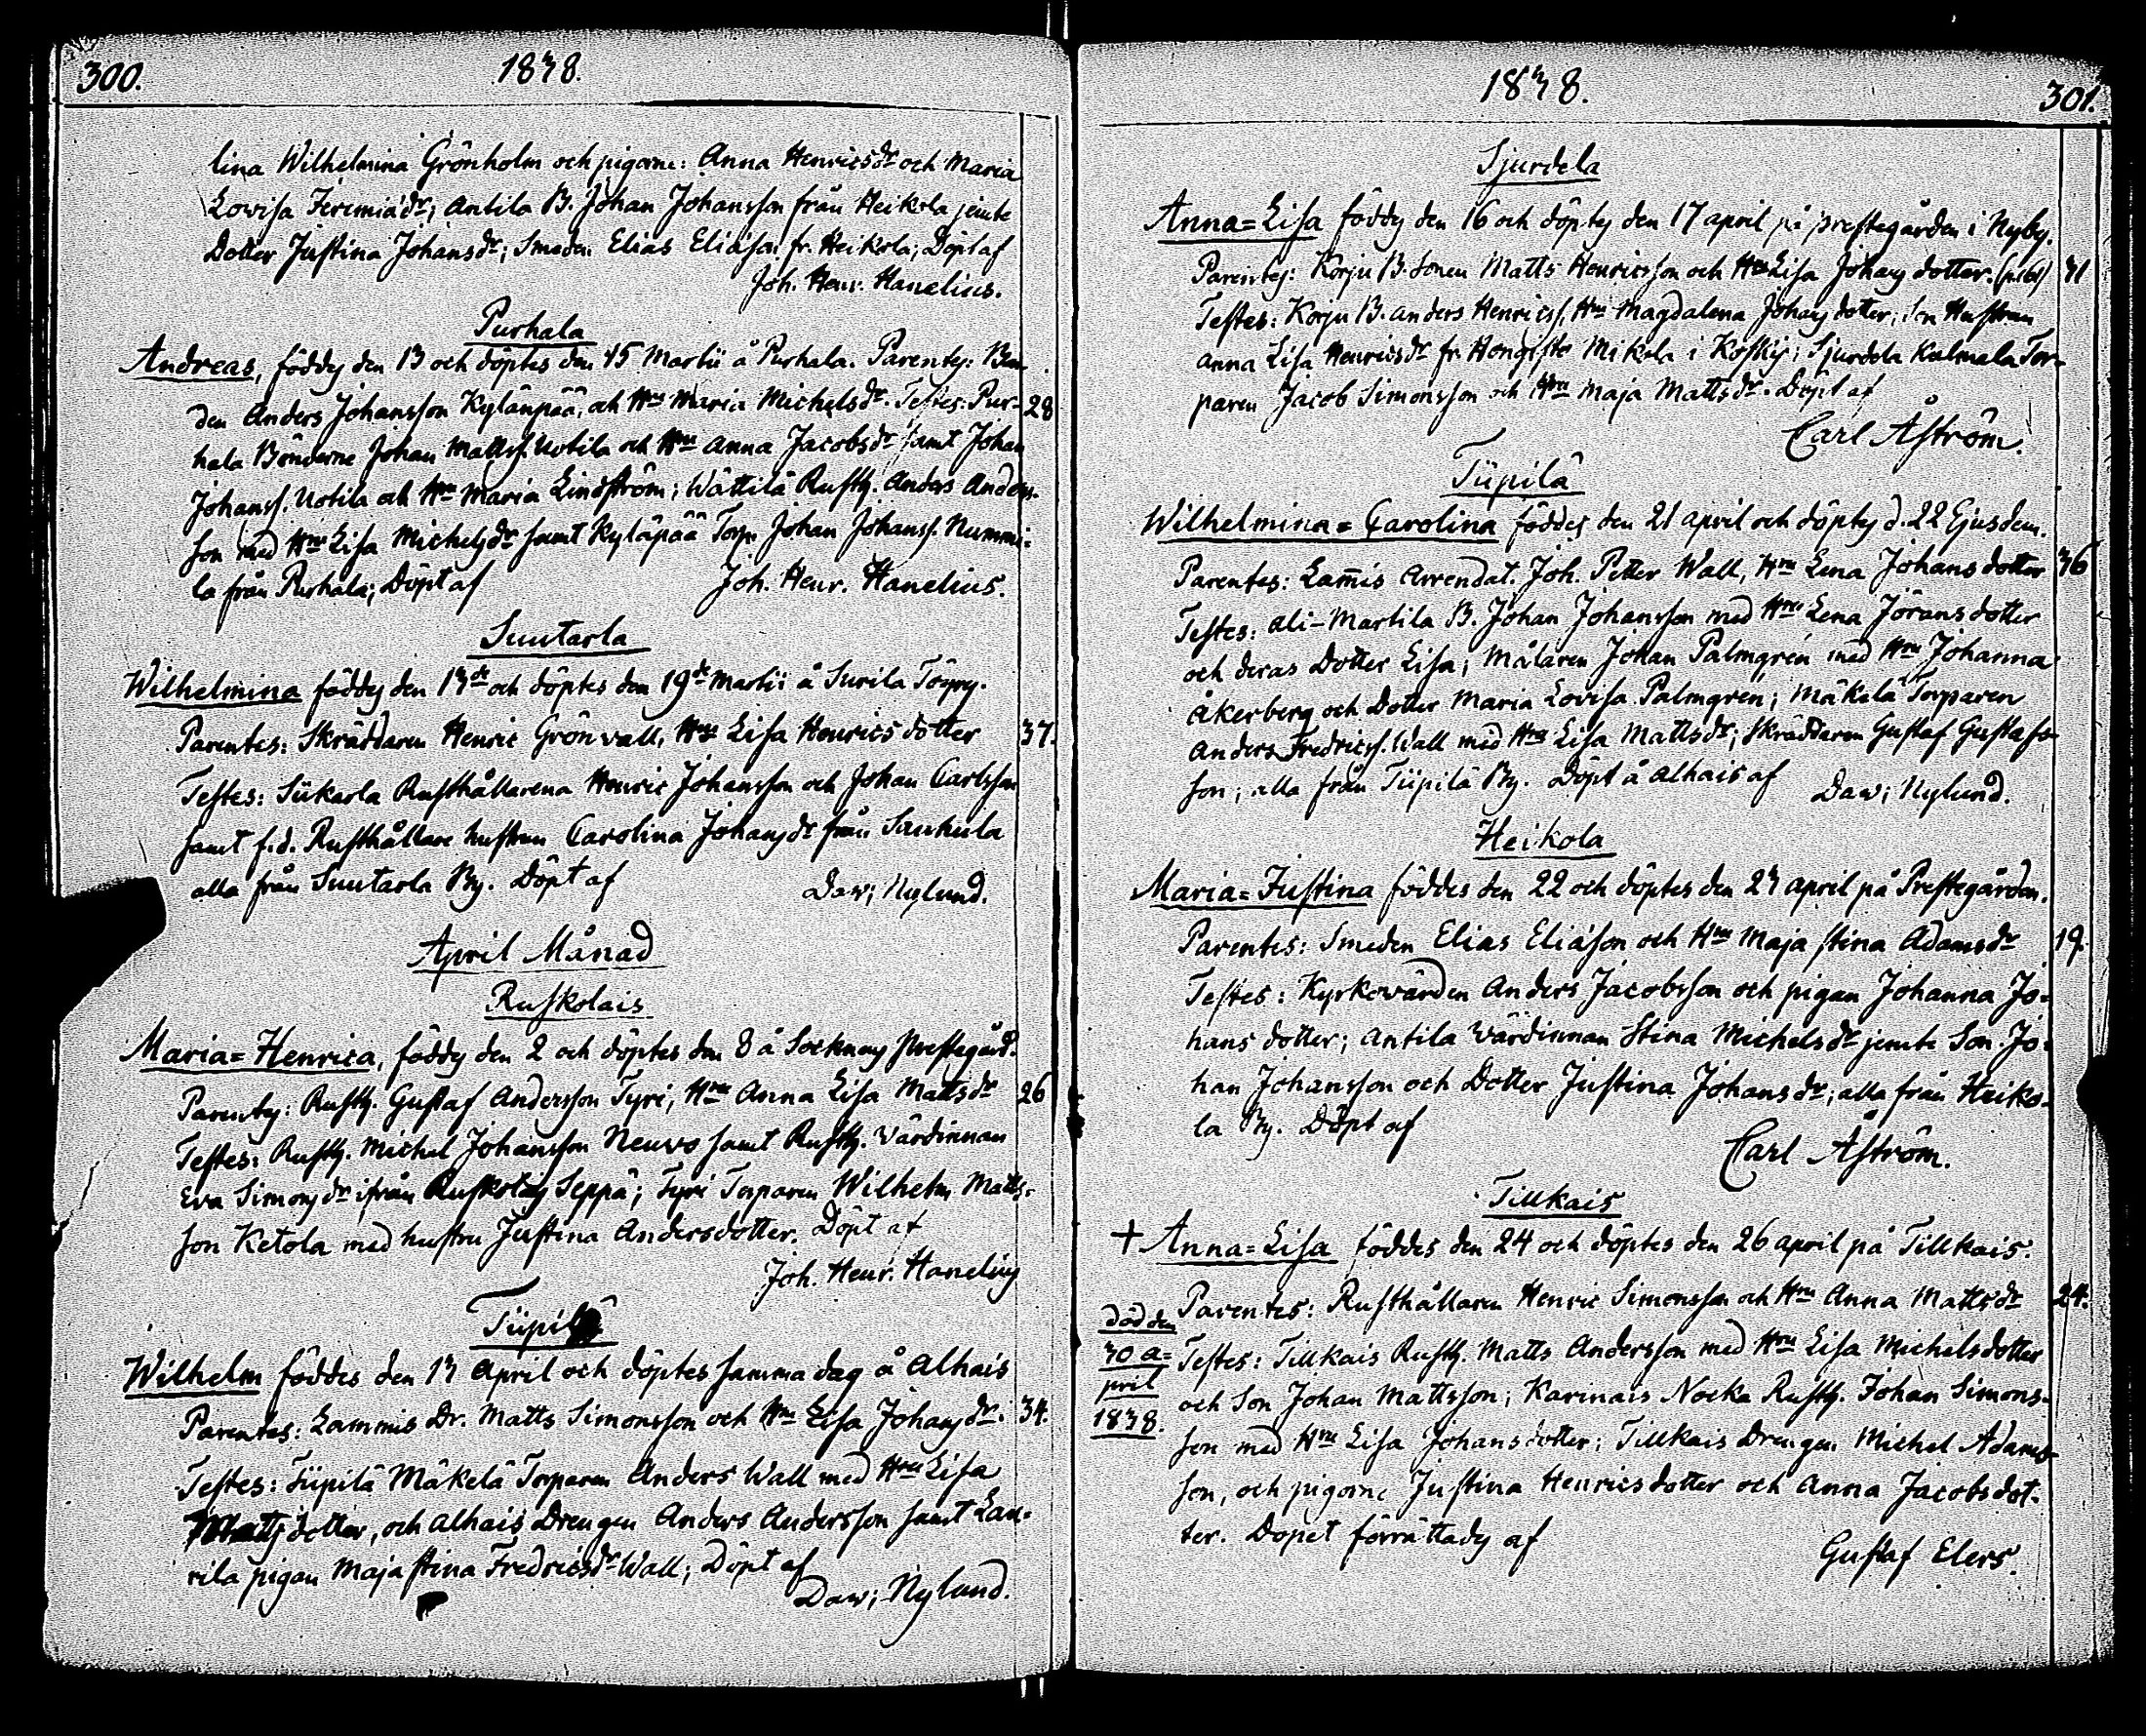 300.
1838.
lina Wilhelmina Grönholm och pigorne: Anna Henricsdr och Maria
Lovisa Jeremiædr; Antila B. Johan Johansson från Heikola jemte
Dotter Justina Johansdr; Smeden Elias Eliäson fr. Heikola; Döpt af
Joh. Henr. Hanelius.
Purhala
Andreas, föddes den 13 och döptes den 15 Martii å Purhala. Parentes: Bon-
den Anders Johansson Kylänpää, och Hru Maria Michelsdr. Testes: Pur-
28
hala Bönderne Johan Mattss. Uotila och Hru Anna Jacobsdr samt Johan
Johanss. Uotila och Hru Maria Lindström; Wättilä Rusth. Anders Anders-
son med Hru Lisa Michelsdr samt Kyläpää Torp. Johan Johanss. Nummi-
la från Purhala; Döpt af
Joh. Henr. Hanelius.
Suutarla
Wilhelmina föddes den 13de och döptes den 19de Martii å Surila Töyry.
Parentes: Skräddaren Henric Grönvall, Hru Lisa Henricsdotter
37.
Testes: Siikarla Rusthållarena Henric Johansson och Johan Carlsson
samt f.d. Rusthållare hustrun Carolina Johansdr från Sauhula
alla från Suutarla By. Döpt af
Dav; Nylund.
April Månad
Ruskolais
Maria=Henrica, föddes den 2 och döptes den 8 å Sockneus prestegård.
Parentes: Rusth. Gustaf Andersson Tyri, Hru Anna Lisa Mattsdr
26
Testes: Rusth. Michel Johansson Neuvo samt Rusth. Värdinnan
Eva Simonsdr ifrån Ruskolais Seppä; Tyri Torparen Wilhelm Matts-
son Ketola med hustru Justina Andersdotter. Döpt af
Joh. Henr. Hanelius
Tiipilä
Wilhelm föddes den 13 April och döptes samma dag å Alhais
Parentes: Lammis Dr. Matts Simonsson och Hru Lisa Johansdr.
34.
Testes: Tiipilä Mäkelä Torparen Anders Wall med Hru Lisa
Mattsdotter, och Alhais Drengen Anders Andersson samt Lau-
rila pigan Maja Stina Fredricsdr Wall; Döpt af
Dav; Nylund.
1838.
301.
Sjurdela
Anna=Lisa föddes den 16 och döptes den 17 april på prestegården i Nyby.
Parentes: Korju B. Sonen Matts Henricsson och Hru Lisa Johans dotter.
31
Testes: Korju B. Anders Henricss, Hru Magdalena Johans dotter; Son Hustrun
Anna Lisa Henricsdr fr. Hongisto Mikola i Koskis; Sjurdela Kulmala Tor-
paren Jacob Simonsson och Hru Maja Mattsdr. Döpt af
Carl Åström.
Tiipilä
Wilhelmina=Carolina föddes den 21 april och döptes d. 22 Ejusdem.
Parentes: Lam̄is Arrendat. Joh. Petter Wall, Hru Lena Johans dotter
36
Testes: Ali-Martila B. Johan Johansson med Hru Lena Jörans dotter
och deras Dotter Lisa; Målaren Johan Palmgrén med Hru Johanna
Åkerberg och Dotter Maria Lovisa Palmgren; Mäkelä Torparen
Anders Fredricss. Wall med Hru Lisa Mattsdr; Skräddaren Gustaf Gustafs-
son; alla från Tiipilä By. Döpt å Alhais af
Dav; Nylund.
Heikola
Maria=Justina föddes den 22 och döptes den 23 april på Prestegården.
Parentes: Smeden Elias Eliäson och Hru Maja Stina Adamsdr
19.
Testes: Kyrkovärden Anders Jacobsson och pigan Johanna Jo-
hans dotter; Antila Värdinnan Stina Michelsdr jemte Son Jo-
han Johansson och Dotter Justina Johansdr; alla från Heiko-
la By. Döpt af
Carl Åström.
Tillkais
+ Anna=Lisa föddes den 24 och döptes den 26 april på Tillkais.
Parentes: Rusthållaren Henric Simonsson och Hru Anna Mattsdr
24.
död den
30 a-
pril
1838.
Testes: Tillkais Rusth. Matts Andersson med Hru Lisa Michelsdotter
och Son Johan Mattsson; Karinais Nocka Rusth. Johan Simons-
son med Hru Lisa Johansdotter; Tillkais Drengen Michel Adams-
son, och pigorne Justina Henricsdotter och Anna Jacobsdot-
ter. Dopet förrättades af
Gustaf Elers.